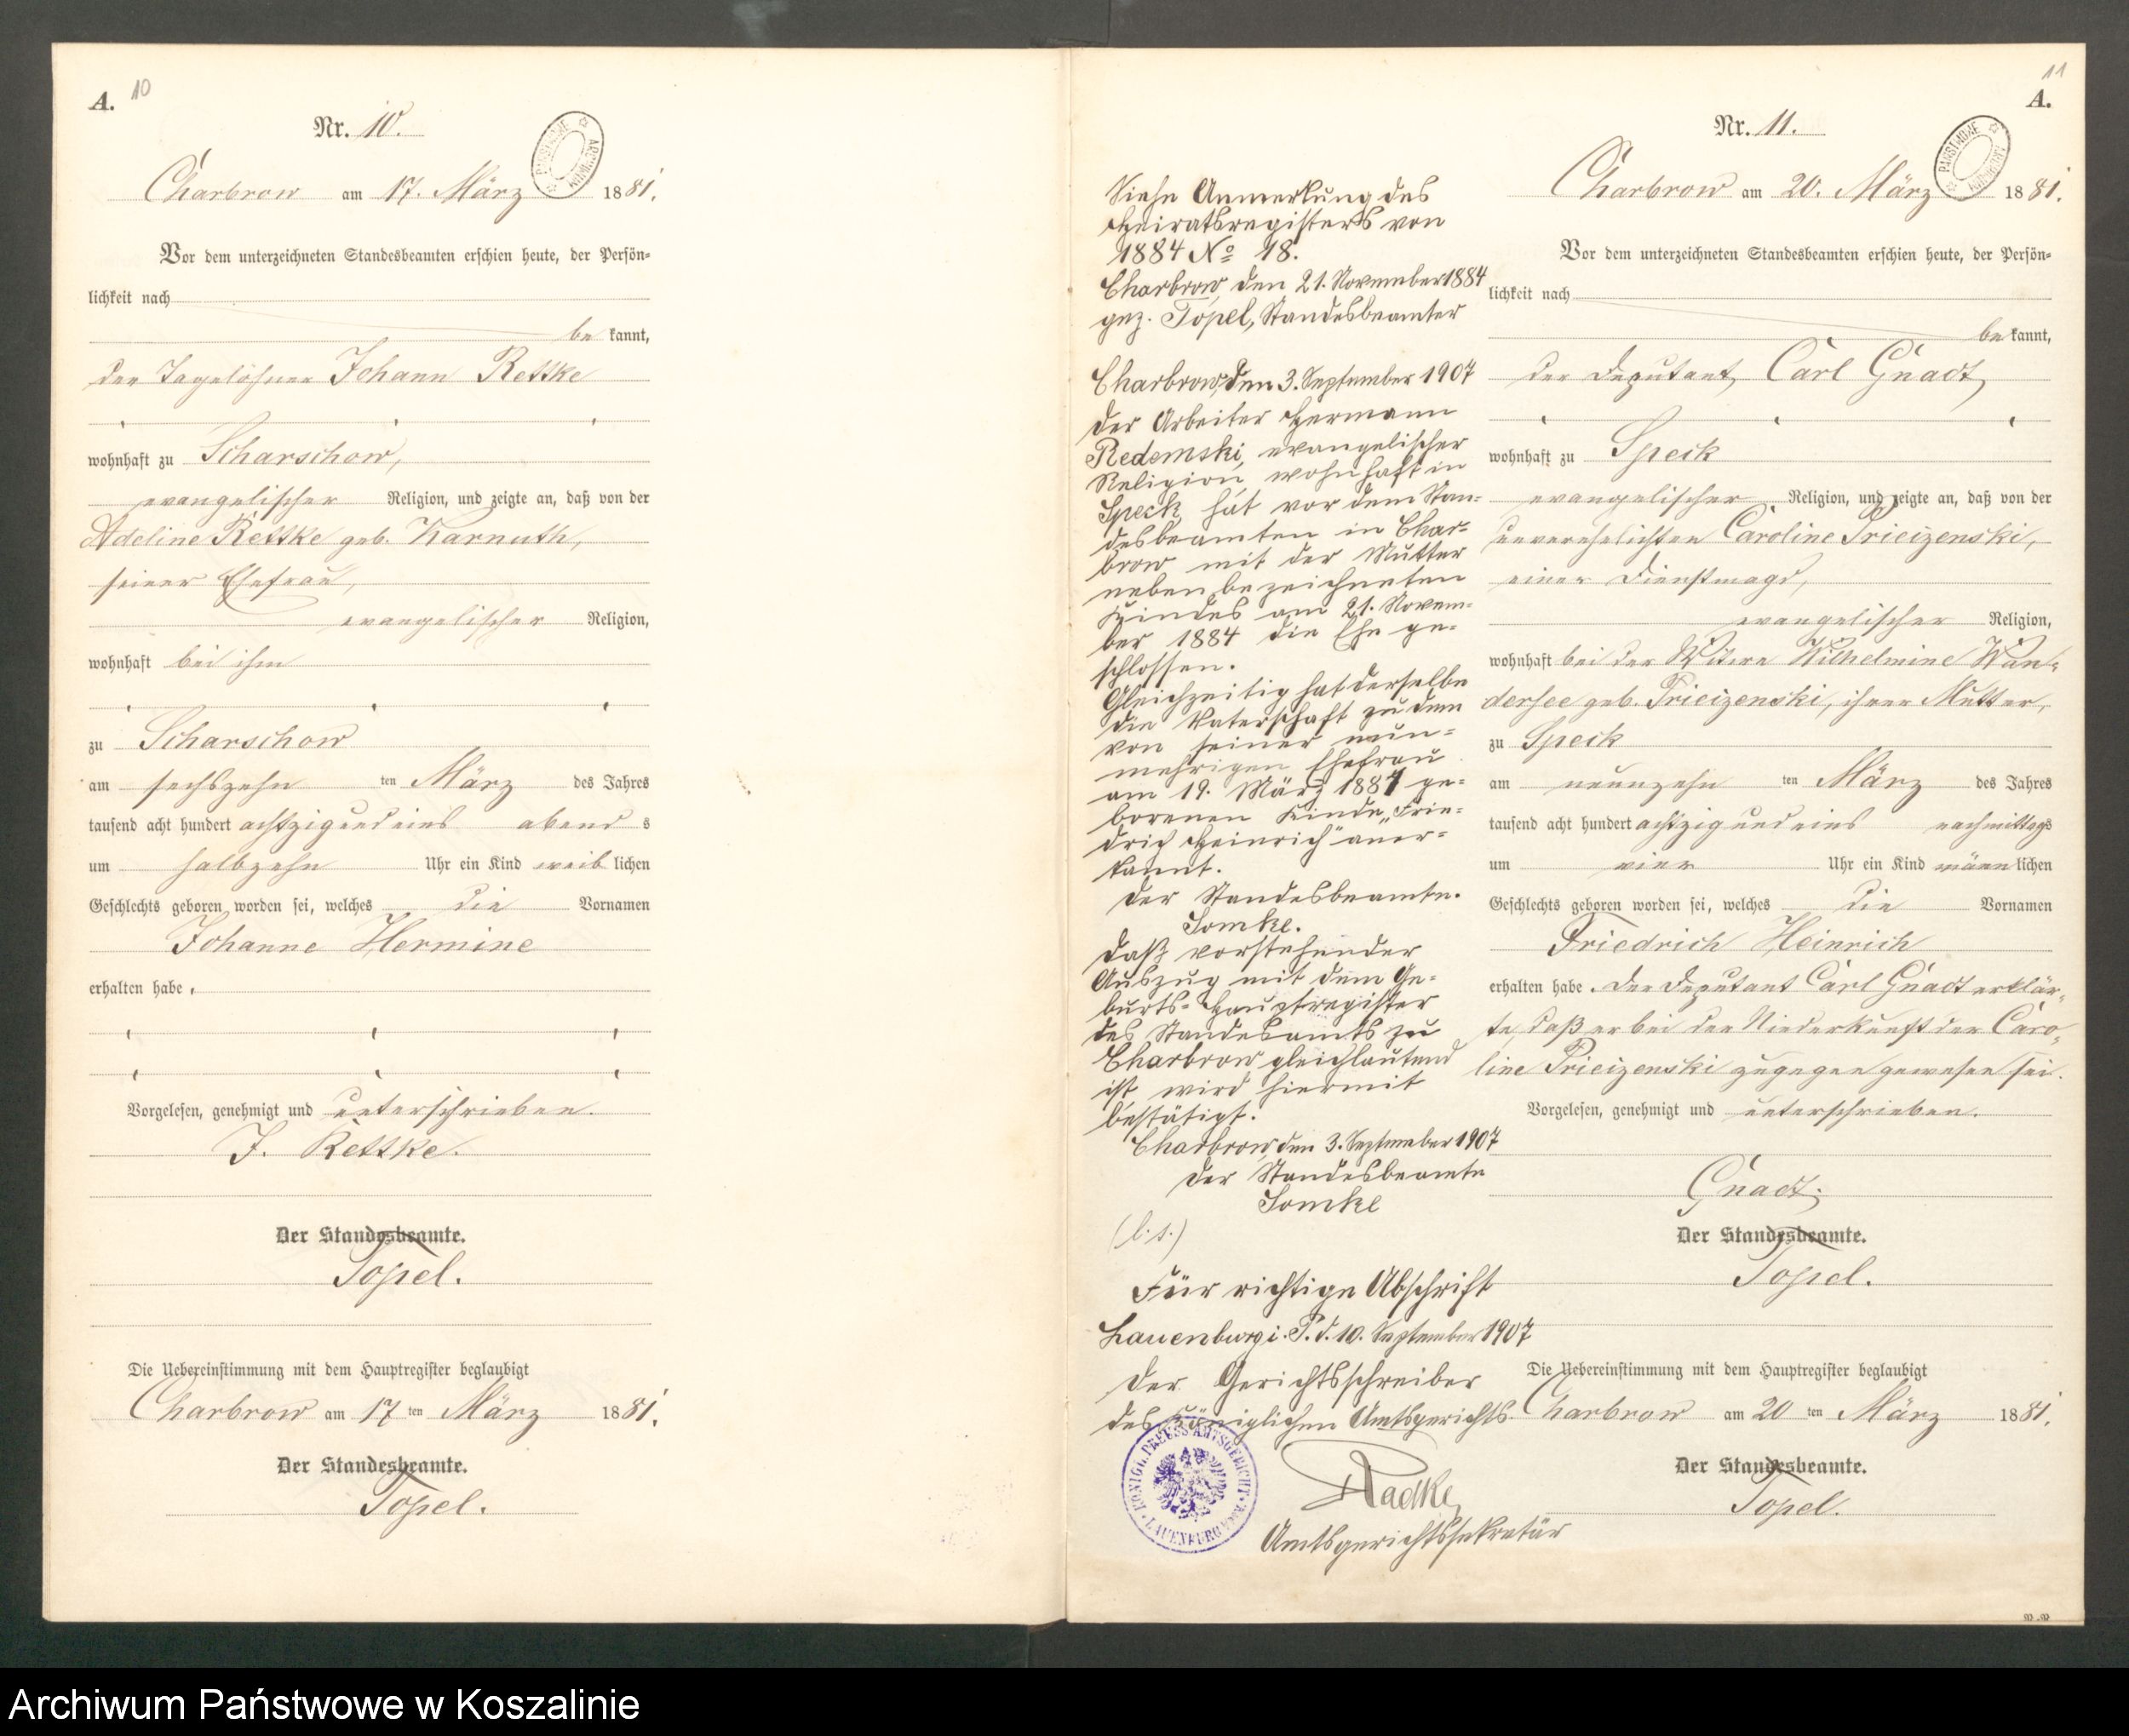 A. 10
Nr. 10.
Charbrow am 17. März 1881.
Vor dem unterzeichneten Standesbeamten erschien heute, der Persön=
lichkeit nach
be kannt,
der Tagelöhner Johann Rettke
wohnhaft zu Scharschow,
evangelischer Religion, und zeigte an, daß von der
Adeline Rettke geb. Karnuth,
seiner Ehefrau,
evangelischer Religion,
wohnhaft bei ihm
zu Scharschow
am sechszehn ten März des Jahres
tausend acht hundert achtzig und eins abend s
um halbzehn Uhr ein Kind weib lichen
Geschlechts geboren worden sei, welches die Vornamen
Johanne Hermine
erhalten habe.
Vorgelesen, genehmigt und unterschrieben.
J. Rettke.
Der Standesbeamte.
Topel.
Die Uebereinstimmung mit dem Hauptregister beglaubigt
Charbrow am 17 ten März 1881.
Der Standesbeamte.
Topel.
Siehe Anmerkung des
Heiratsregisters von
1884 No 18.
Charbrow, den 21. November 1884
gez. Topel, Standesbeamter
Charbrow, den 3. September 1907
Der Arbeiter Hermann
Redemski, evangelischer
Religion, wohnhaft in
Speck, hat vor dem Stan=
desbeamten in Char=
brow mit der Mutter
nebenbezeichneten
Kindes am 21. Novem=
ber 1884 die Ehe ge=
schlossen.
Gleichzeitig hat derselbe
die Vaterschaft zu dem
von seiner nun=
mehrigen Ehefrau
am 19. März 1881 ge=
borenen Kinde „Frie=
drich Heinrich" aner=
kannt.
Der Standesbeamte.
Lomke.
Daß vorstehender
Auszug mit dem Ge=
burts=Hauptregister
des Standesamts zu
Charbrow gleichlautend
ist wird hiermit
bestätigt.
Charbrow, den 3. September 1907
Der Standesbeamte
Lomke
(L. S.)
Für richtige Abschrift
Lauenburg i. P. d. 10. September 1907
Der Gerichtsschreiber
des Königlichen Amtsgerichts
KÖNIGL. PREUSS. AMTSGERICHT
LAUENBURG
Radke,
Amtsgerichtssekretär
11
A.
Nr. 11.
Charbrow am 20. März 1881.
Vor dem unterzeichneten Standesbeamten erschien heute, der Persön=
lichkeit nach
be kannt,
der Deputant Carl Gnadt,
wohnhaft zu Speck
evangelischer Religion, und zeigte an, daß von der
unverehelichten Caroline Pricizenski,
einer Dienstmagd,
evangelischer Religion,
wohnhaft bei der Witwe Wilhelmine Wan=
dersee geb. Pricizenski, ihrer Mutter,
zu Speck
am neunzehn ten März des Jahres
tausend acht hundert achtzig und eins nachmittags
um vier Uhr ein Kind männ lichen
Geschlechts geboren worden sei, welches die Vornamen
Friedrich Heinrich
erhalten habe. Der Deputant Carl Gnadt erklär=
te, daß er bei der Niederkunft der Caro=
line Pricizenski zugegen gewesen sei.
Vorgelesen, genehmigt und unterschrieben.
Gnadt.
Der Standesbeamte.
Topel.
Die Uebereinstimmung mit dem Hauptregister beglaubigt
Charbrow am 20 ten März 1881.
Der Standesbeamte.
Topel.
Archiwum Państwowe w Koszalinie